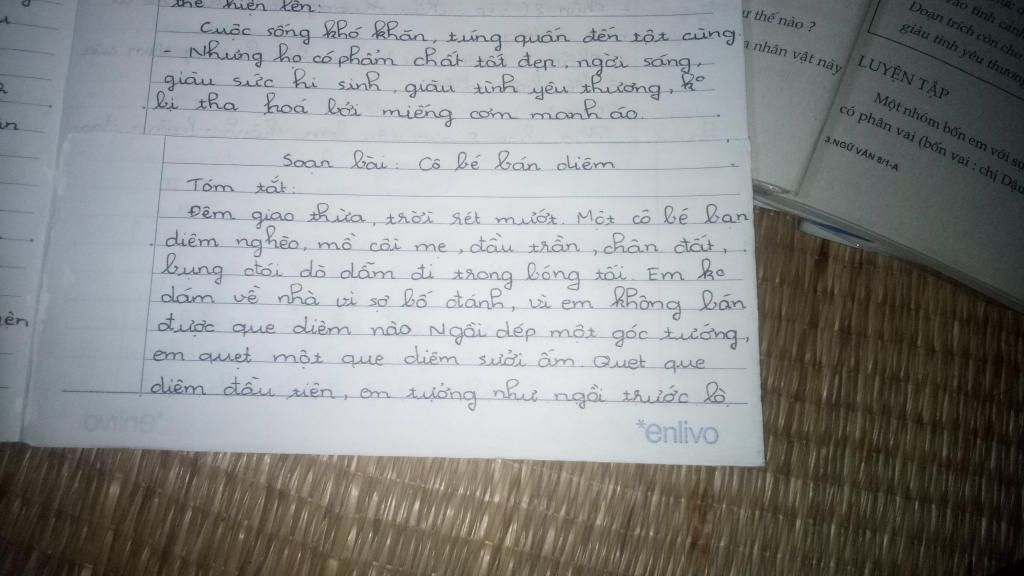 thể hiện lên:
Cuộc sống khó khăn, túng quẫn đến tột cùng.
- Nhưng họ có phẩm chất tốt đẹp, ngời sáng,
giàu sức hi sinh, giàu tình yêu thương, ko
bị tha hoá bởi miếng cơm manh áo.
Soạn bài: Cô bé bán diêm
Tóm tắt:
Đêm giao thừa, trời rét mướt. Một cô bé bán
diêm nghèo, mồ côi mẹ, đầu trần, chân đất,
bụng đói dò dẫm đi trong bóng tối. Em ko
dám về nhà vì sợ bố đánh, vì em không bán
được que diêm nào Ngồi dép một góc tường,
em quẹt một que diêm sưởi ấm. Quẹt que
diêm đầu tiên, em tưởng như ngồi trước lò
*enlivo
ư thế nào ?
nhân vật này
Đoạn trích còn
giàu tình yêu thương
LUYỆN TẬP
Một nhóm bốn em với
có phân vai (bốn vai : chị Dậu
3.NGỮ VĂN 8/1-A